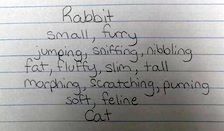 Rabbit
small, furry
jumping, sniffing, nibbling
fat, fluffy, slim, tall
morphing, scratching, purring
soft, feline
Cat